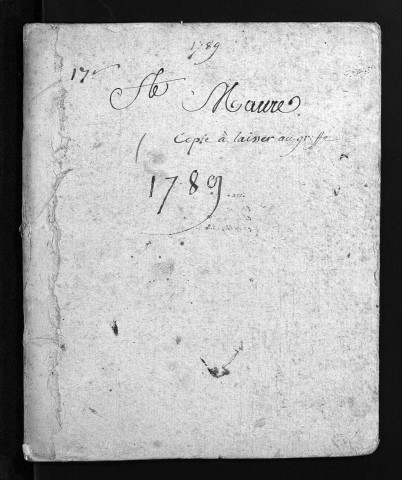 1789
17
Ste Maure
Copie à laisser au griffe
1789